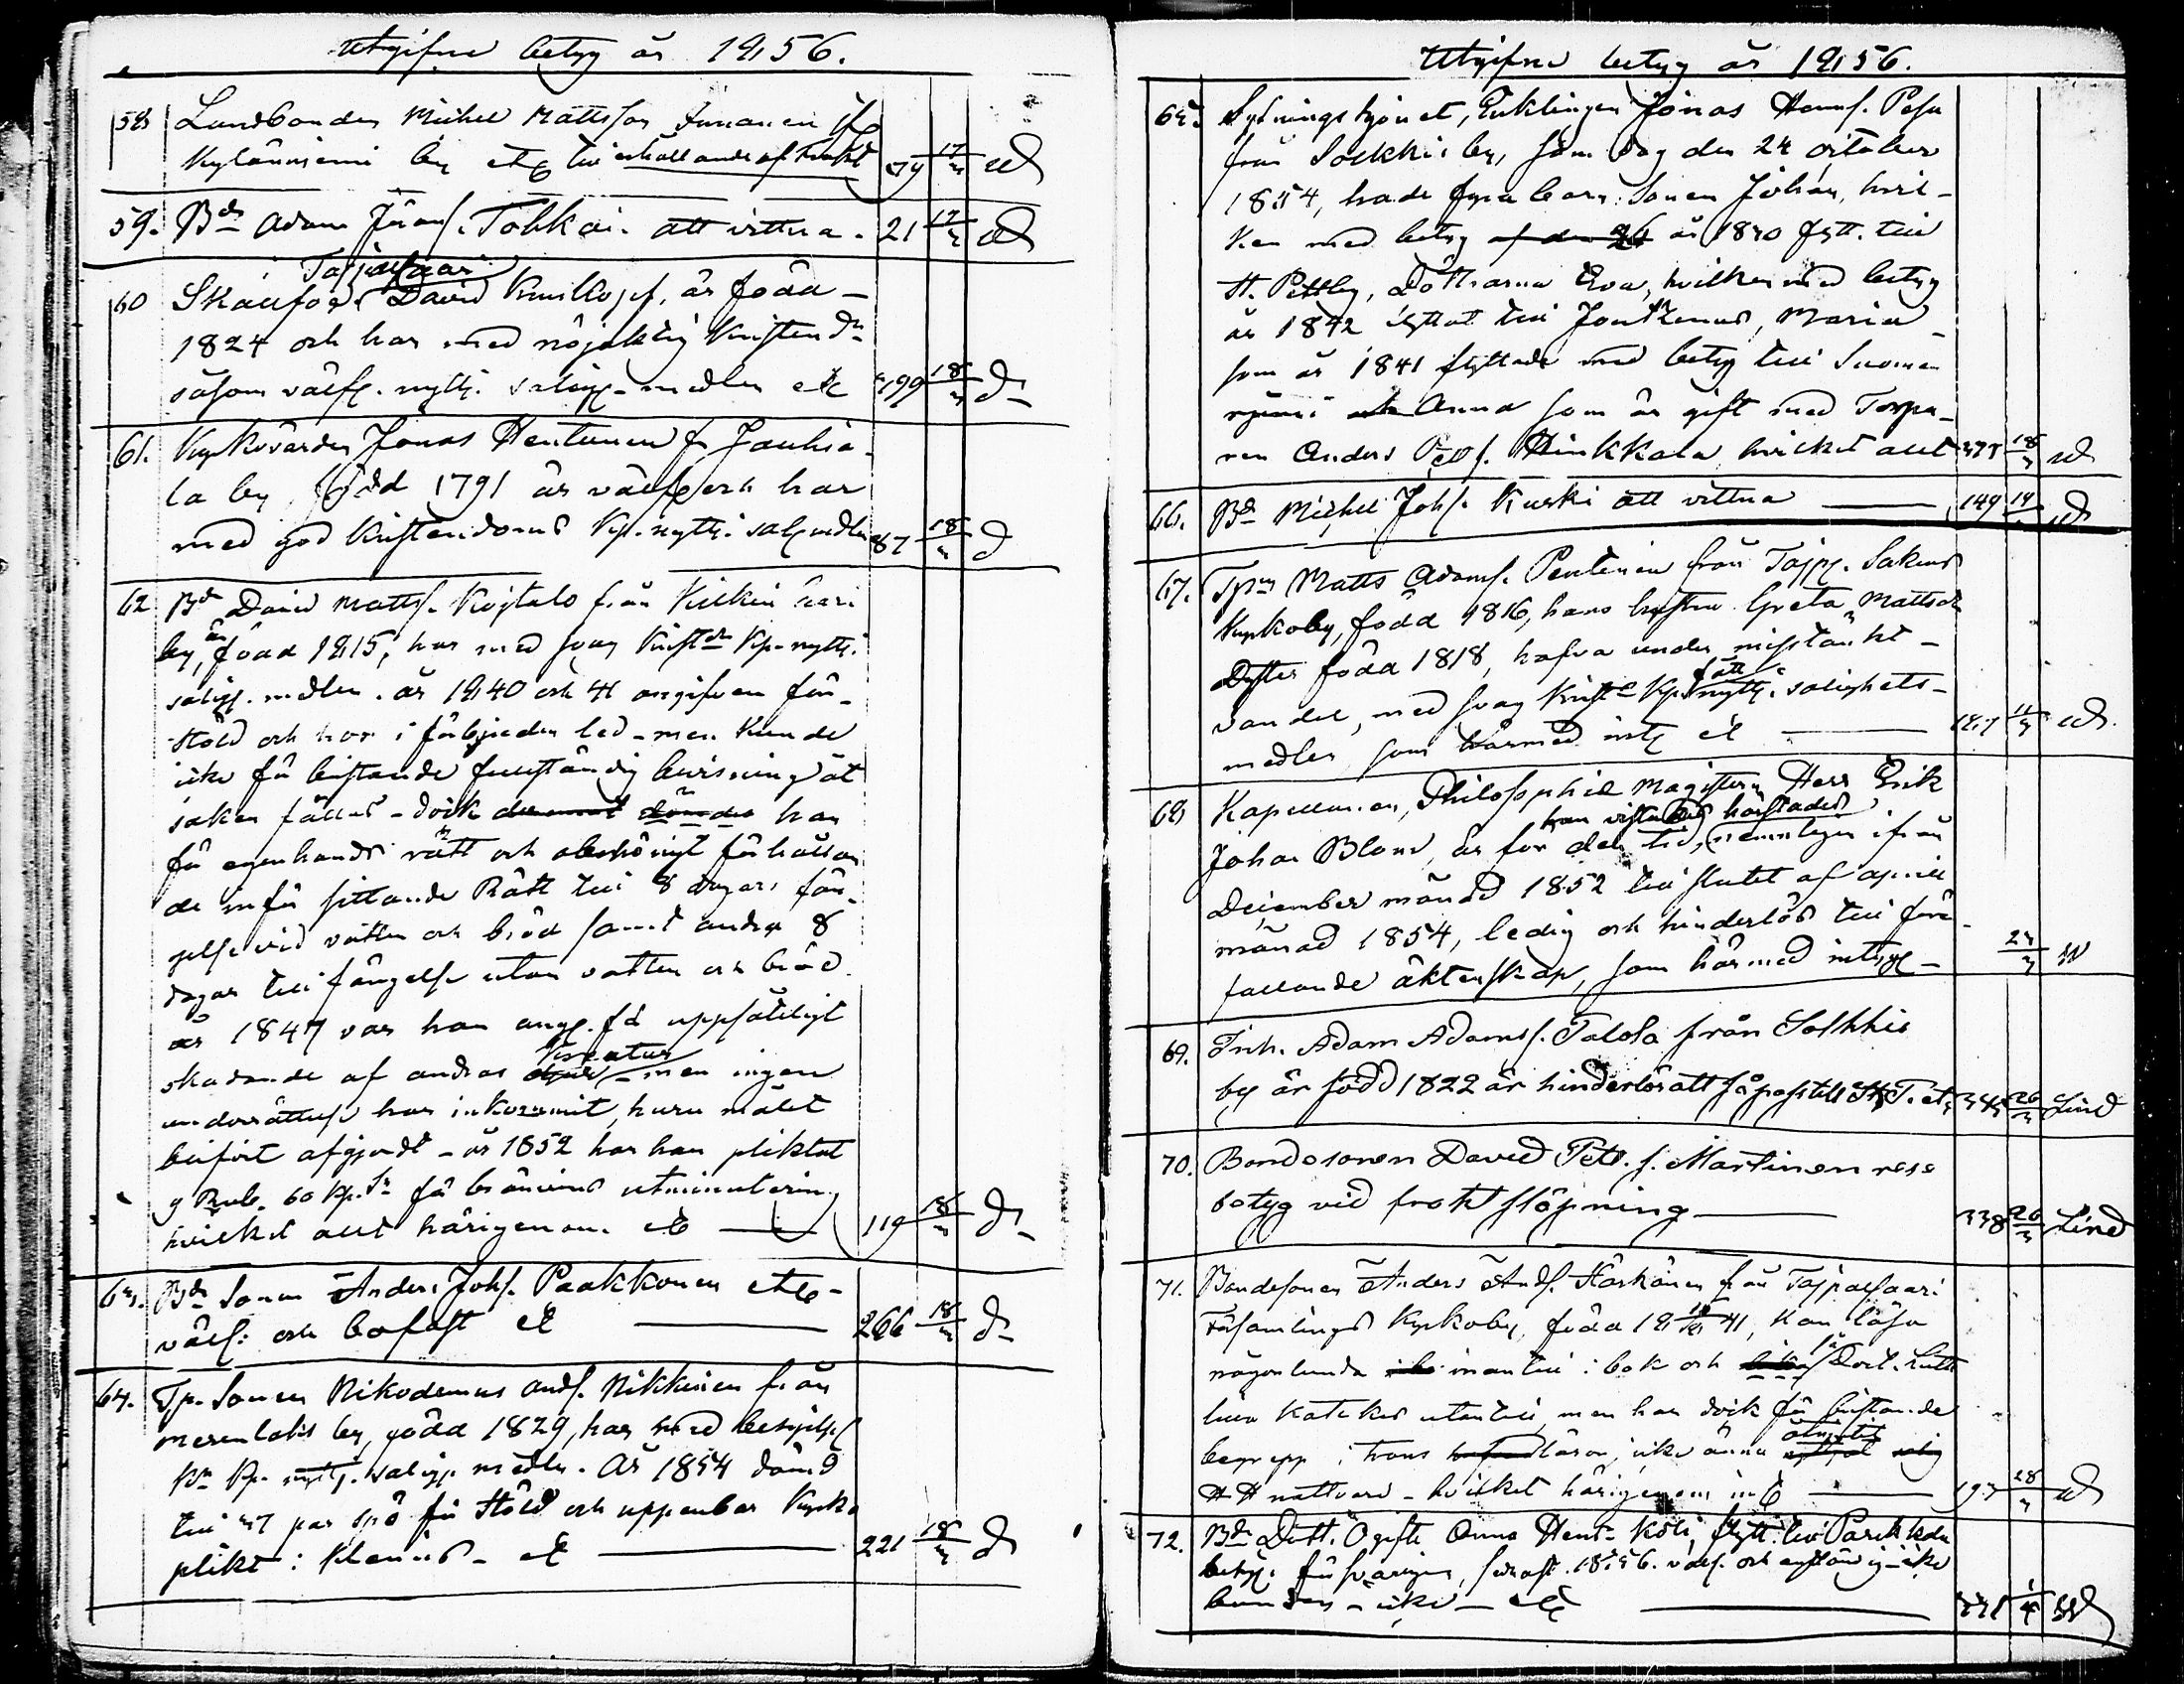 Utgifne betyg år 1856.
58 Landbonden Michel Mattsson Immonen ifr
Kylänniemi by etc till erhållande af frakt 79 17/3
59. Bdn Adam Jöransf. Tolkki. att vittna. 21 17/3
Taipalsaari
60 Skallfog. David Kruskopf, är född
1824 och har med nöjaktig Kristend:
såsom välfr. nyttj. saligg. medlen etc 199 18/3
61. Kyrkovärden Jonas Hentunen fr Jauhia-
la by, född 1791 är välfr och har
med god Kristendoms Kp. nyttj. salg medlen 87 18/3
62 Bdn David Mattsf. Kojtalo från Kilkin kari
by, är född 1815, har med svag Kristd Kp. nyttj.
saligg. medlen. år 1840 och 41 angifven för
stöld och hor i förbjuden led - men kunde
icke för bristande fullständig bevisning åt
saken fällas - dock dömdes han
för egenhands rätt och obehörigt förhållan
de inför sittande Rätt till 8 dagars fän-
gelse vid vatten och bröd samt andra 8
dagar till fängelse utan vatten och bröd.
år 1847 var han angg. för uppsåtligt
kreatur
skadande af andras djur - men ingen
underrättelse har inkommit, huru målet
blifvit afgjordt - år 1852 har han pliktat
9 Rub. 60 Kp. Sr för bränvins utminutering
hvilket allt härigenom etc 119 18/3
63. Bde Sonen Anders Johsf. Paakkonen etc
välf: och bofast etc 266 18/3
64. Tp. Sonen Nikodemus Andsf. Nikkinen från
Merenlaks by, född 1829, har med
Kp. nyttj. saligg. medln. År 1854 dömd
till 27 par spö för Stöld och uppenbar Kyrko
plikt: Klemis - etc 221 18/3
Utgifne betyg år 1856.
65. Sytningshjonet, Enklingen Jonas Hansf. Pesu
från Solkkis by, som dog den 24 october
1854, hade fyra barn: Sonen Johan, hvil-
ken med betyg af den 26 år 1840 flytt. till
St. Petbg, Döttrarna Eva, hvilken med betyg
år 1842 flyttat till Joutzenus, Maria
som år 1841 flyttade med betyg till Suomen
niemi och Anna som är gift med Torpa-
ren Anders Pedf. Hinkkala hvilket allt 375 18/3
66. Bdn Michel Johsf. Kurki att vittna 149 19
67. Tpn Matts Adamsf. Pentinen från Tajp. Saknas
Kyrkoby, född 1816, hans hustru Greta Matts
Dotter född 1818, hafva under misstänkt
fått
vandel, med svag Krist Kp. nyttj. salighets-
medlen som härmed intg etc 187
68 Kapellanen, Philosophiæ Magistern Herr Erik
han vistades härstädes
Johan Blom, är för den tid, nemligen ifrån
December månad 1852 till slutet af april
månad 1854, ledig och hinderlös till före
fallande äktenskap, som härmed intyg 24/3
69. Inh. Adam Adamsf. Talola från Solkkis
by är född 1822 är hinderlös att få pass till St. P. etc 343 26/3 Lind
70. Bondesonen David Petr. s. Martinen rese
betyg vid frakt slöpning 338 26/3 Lind
71. Bondesonen Anders Andsf. Härkönen från Tajpalsaari
Församlings Kyrkoby, född 18 41, kan läsa
någorlunda innantill i bok och Doct. Luth
lilla Kateches utantill, men har dock för bristande
åtnjutit
begrepp i trons läror, icke ännu
H H nattvard - hvilket härigenom intg 197 28/3
72. Bdn Dott. Ogifta Anna Hensd Köli, flytt. till Parikkala
betyg. fr 1856. välf. och anständig - icke
bunden - icke - etc 331 1/4